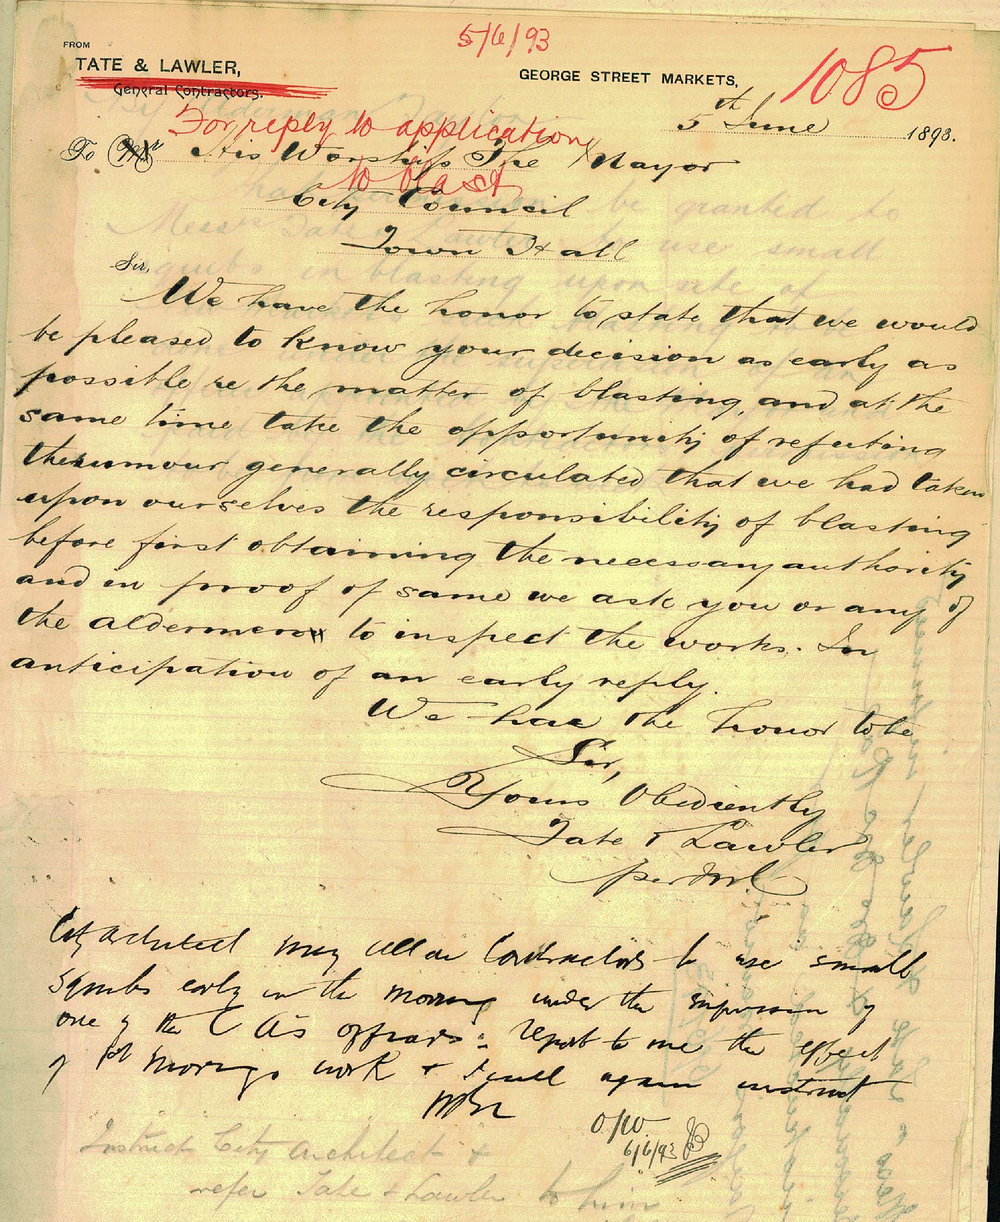 5/6/93
FROM
TATE & LAWLER,
General Contractors.
GEORGE STREET MARKETS,
1085
5th June 1893.
For reply to application
to blast
To His Worship The Mayor
City Council
Town Hall
Sir,
We have the honor to state that we would
be pleased to know your decision as early as
possible re the matter of blasting, and at the
same time take the opportunity of refuting
the rumour generally circulated that we had taken
upon ourselves the responsibility of blasting
before first obtaining the necessary authority
and in proof of same we ask you or any of
the aldermen to inspect the works. In
anticipation of an early reply.
We have the honor to be
Sir,
Yours Obediently
Tate & Lawler
per
City Architect may allow Contractors to use small
squibs early in the morning under the supervision of
one of the CA's officers: report to me the effect
of 1st mornings work & I will again instruct
6/6/93
Instruct City Architect &
refer Tate & Lawler to him